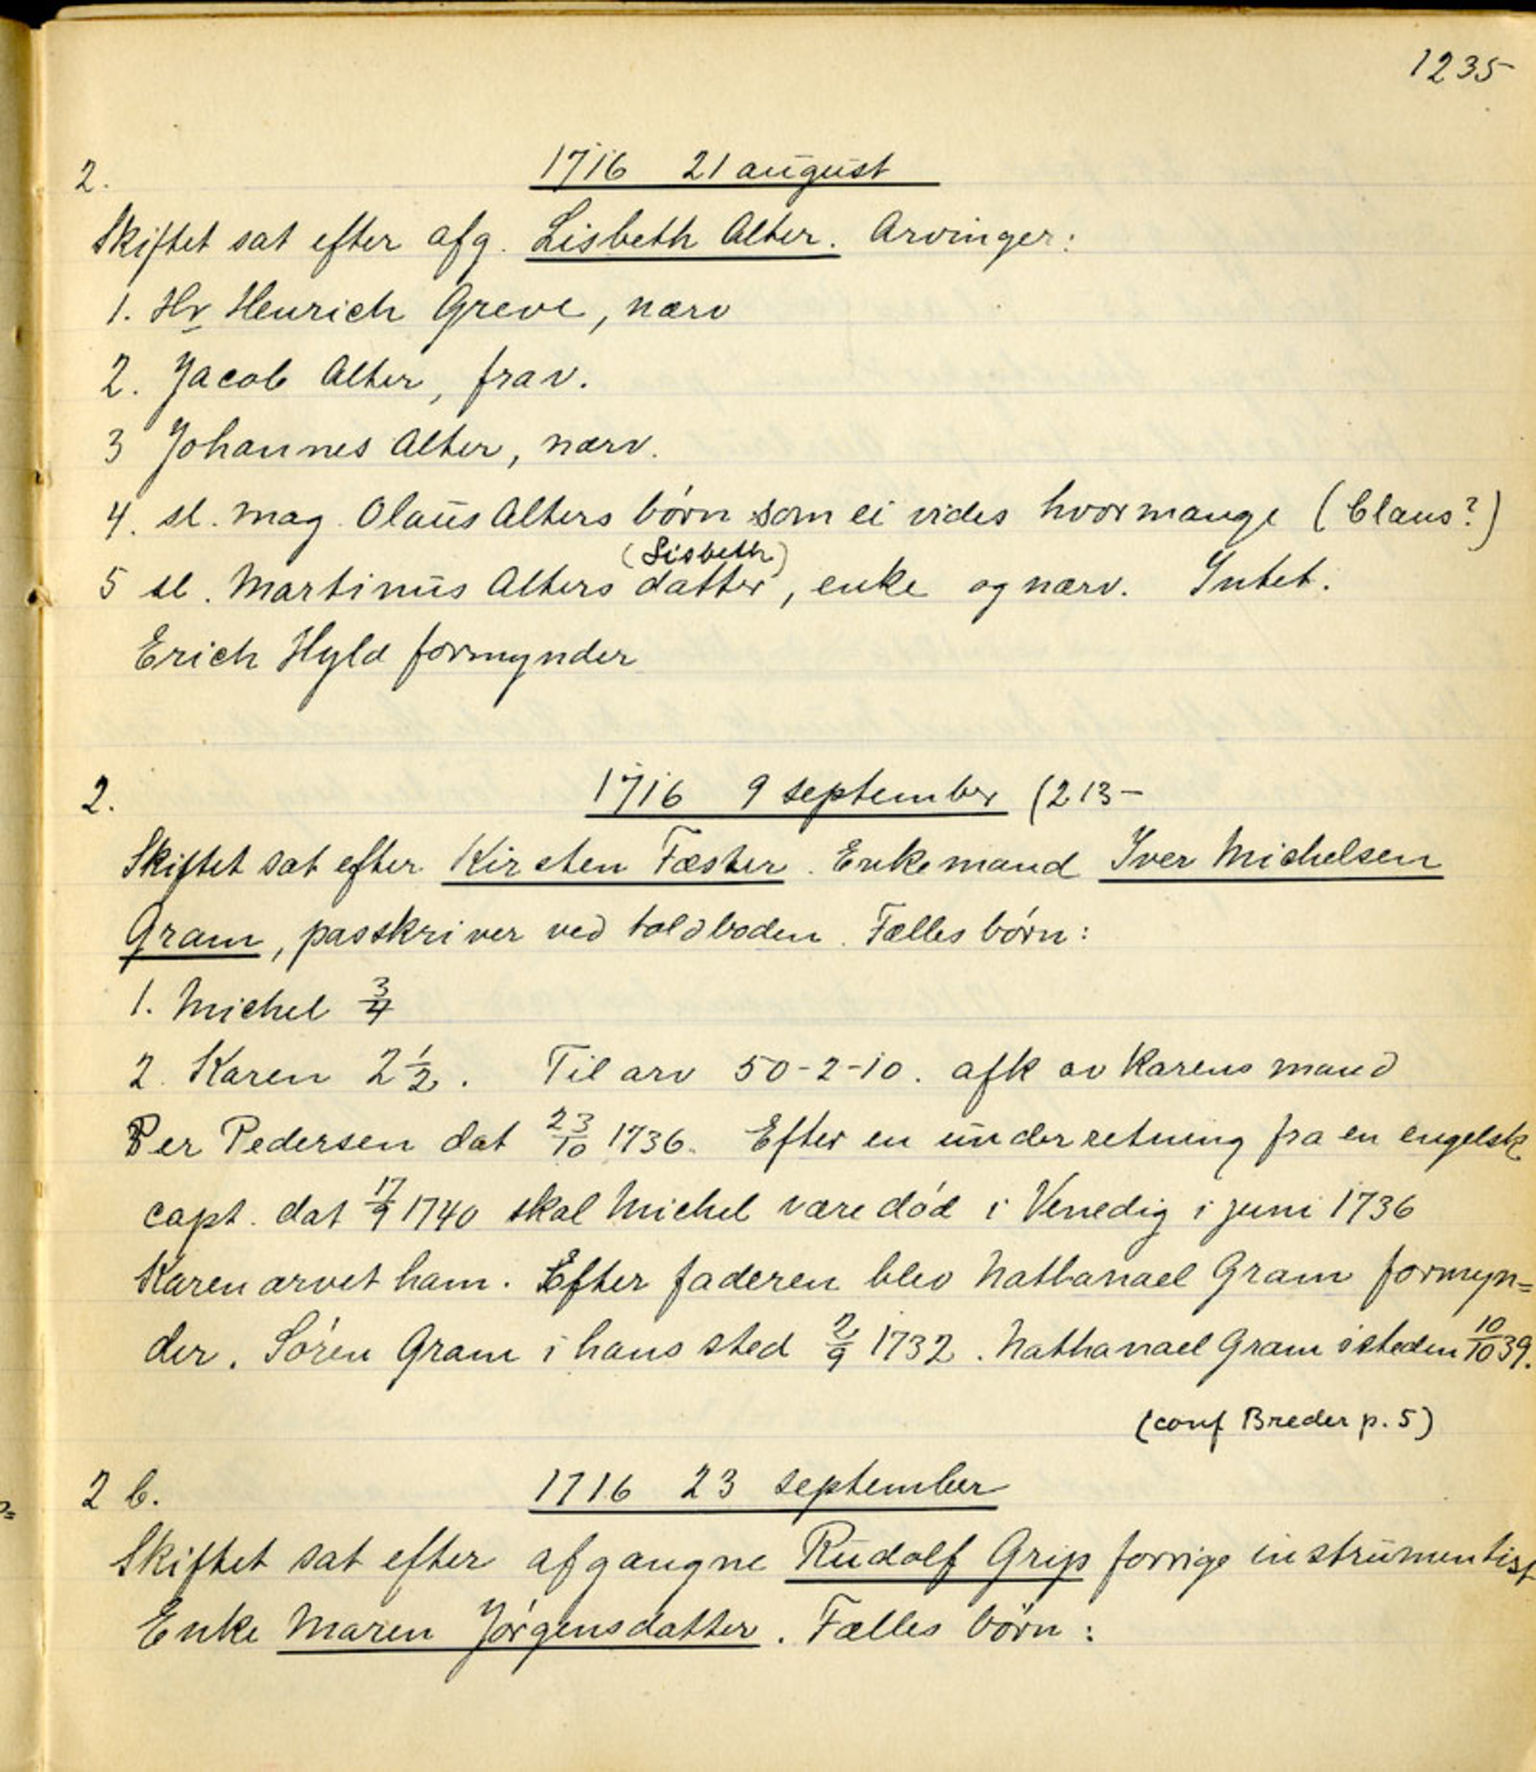 1235
2. 1716 21 august
Skiftet sat efter afg. Lisbeth Alter. Arvinger:
1. Hr Henrich Greve, nærv
2. Jacob Alter, frav.
3 Johannes Alter, nærv.
4. sl. mag. Olaus Alters børn som ei vides hvormange (Claus?)
(Lisbeth)
5 sl. Martinus Alters datter, enke og nærv. Intet.
Erich Hyld formynder
2. 1716 9 september (213-
Skiftet sat efter Kirsten Fæster. Enkemand Iver Michelsen
Gram, passkriver ved toldboden. Fælles børn:
1. Michel 3/4
2. Karen 2 1/2. Til arv 50-2-10. afk av Karens mand
Per Pedersen dat 23/10 1736. Efter en underretning fra en engelsk
capt. dat 17/9 1740 skal Michel være død i Venedig i juni 1736
Karen arvet ham. Efter faderen blev Nathanael Gram formyn=
der. Søren Gram i hans sted 2/9 1732. Nathanael Gram isteden 10/10 39.
(conf Breder p. 5)
2 b. 1716 23 september
Skiftet sat efter afgangne Rudolf Grip forrige instrumentist
Enke Maren Jørgensdatter. Fælles børn: